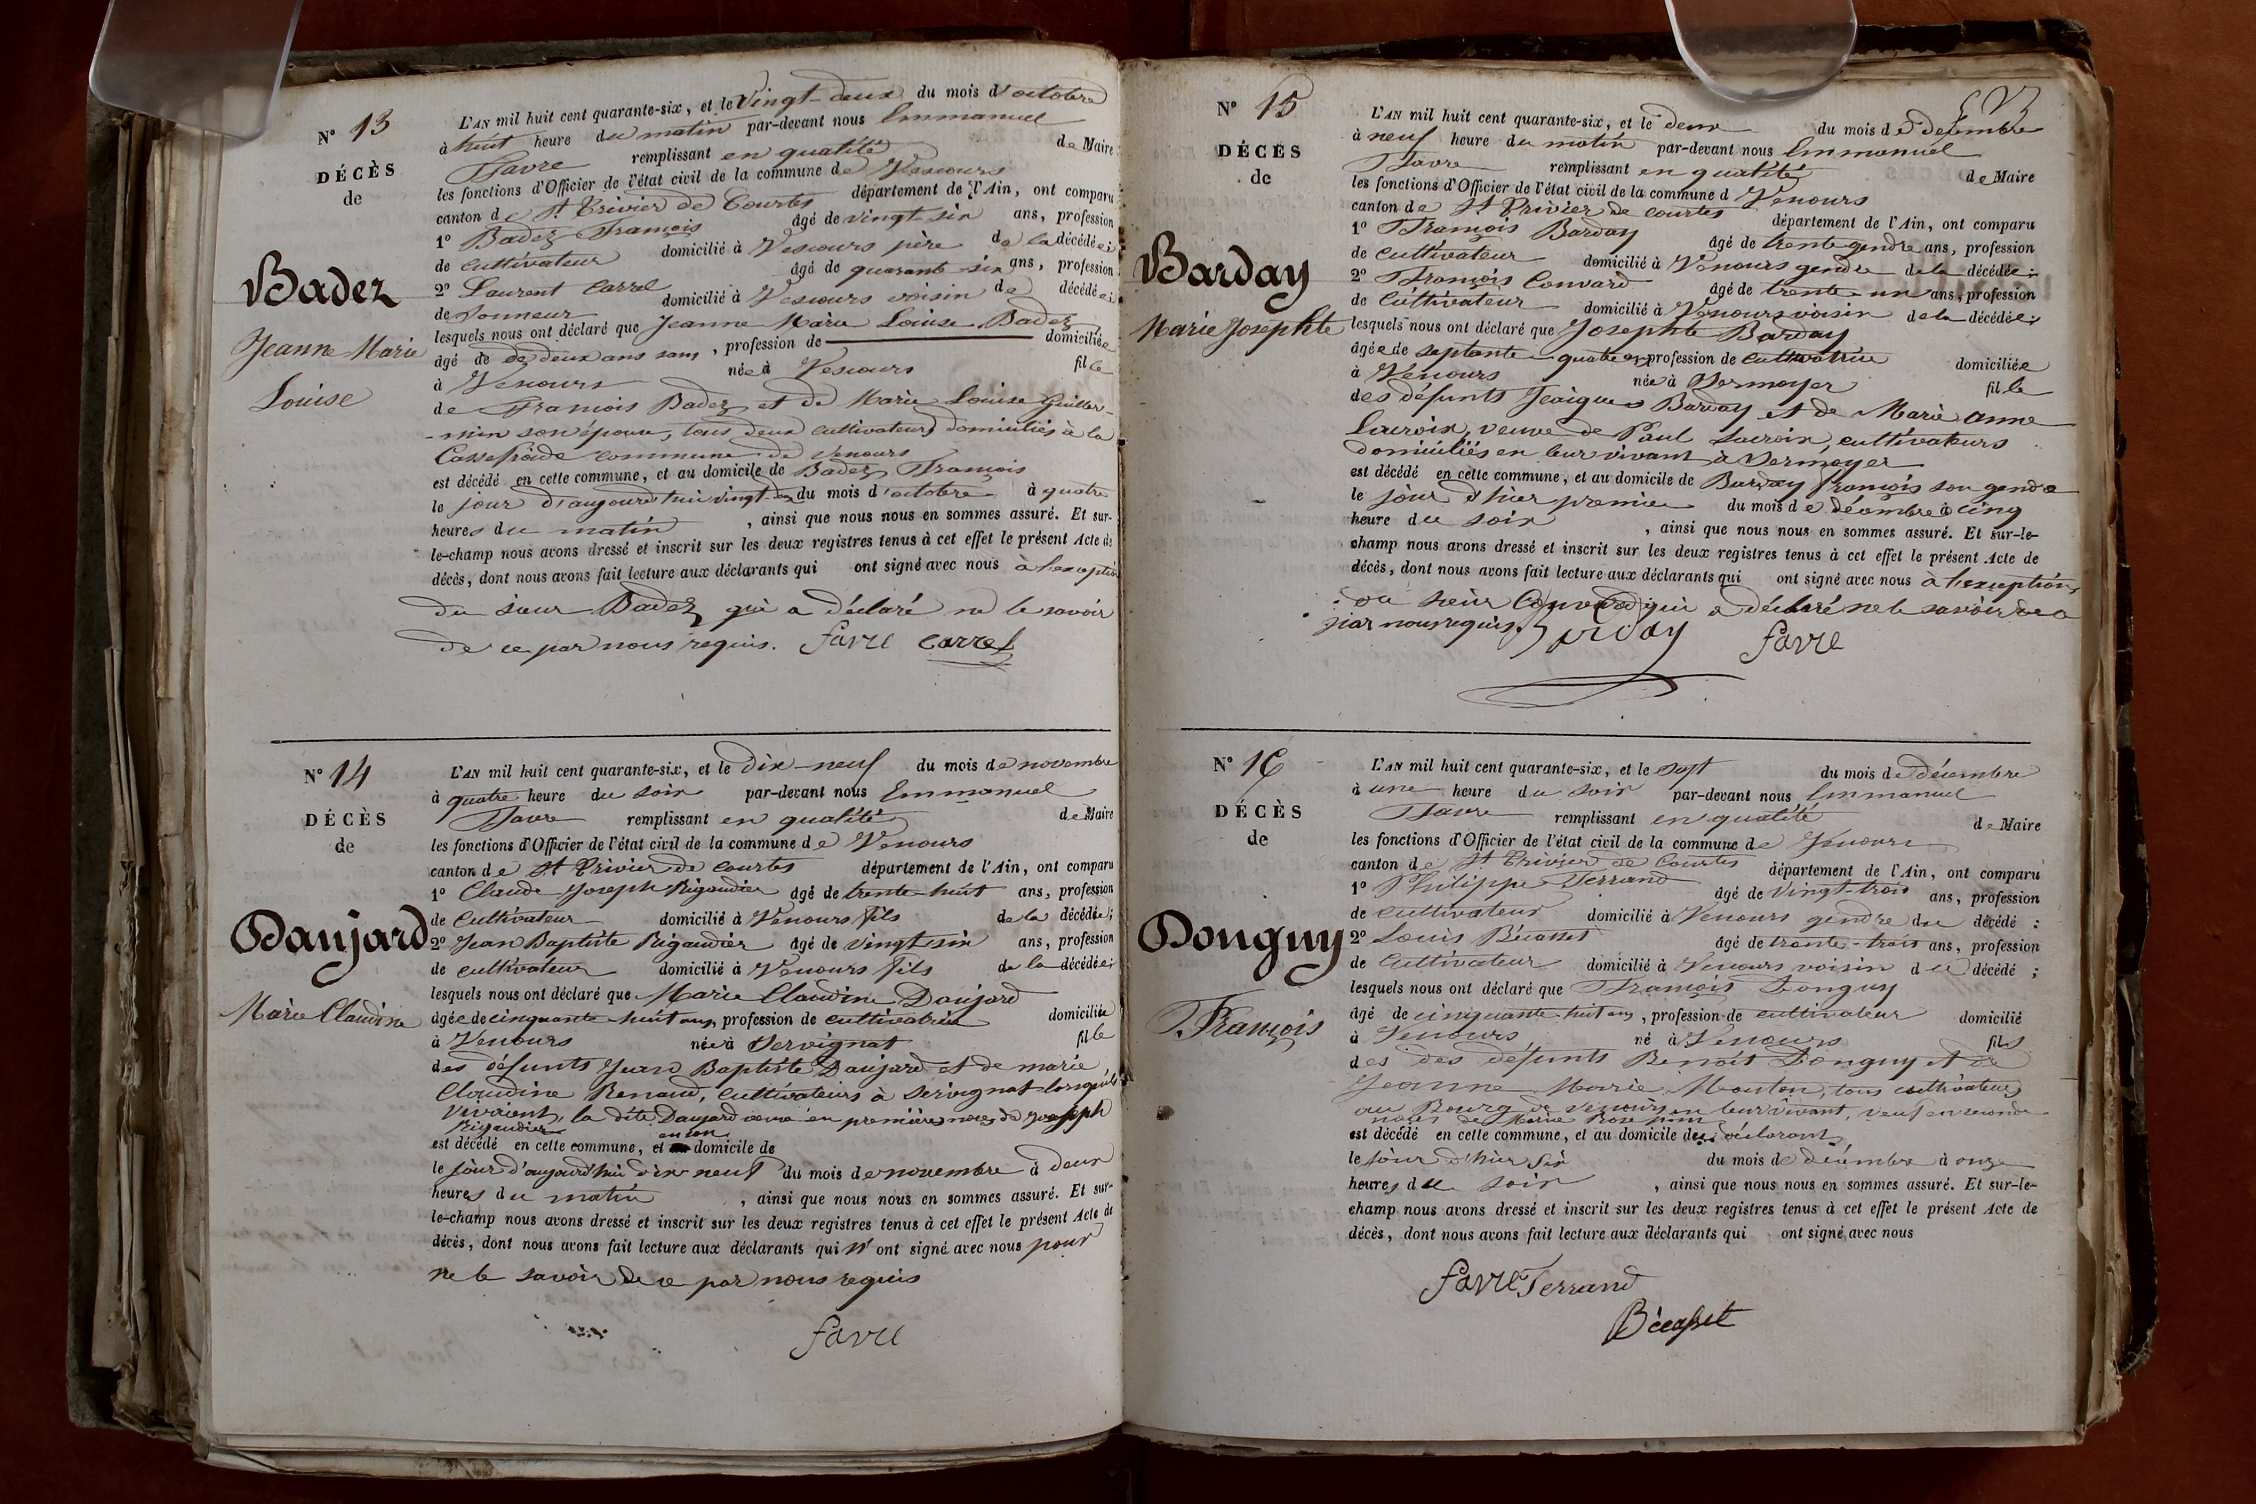 N° 13
DÉCÈS
de
Badez
Jeanne Marie
Louise
L'AN mil huit cent quarante-six, et le Vingt-deux du mois d'octobre
à huit heure du matin par-devant nous Emmanuel
Favre remplissant en qualité de Maire
les fonctions d'Officier de l'état civil de la commune de Vescours
canton de St Trivier de Courtes département de l'Ain, ont comparu
1° Badez François âgé de vingt six ans, profession
de cultivateur domicilié à Vescours père de la décédée;
2° Laurent Carrel âgé de quarante-six ans, profession
de domicilié à Vescours voisin de décédée;
lesquels nous ont déclaré que Jeanne Marie Louise Badez
âgé de de deux ans , profession de domiciliée
à Vescours née à Vescours fille
de François Badez et de Marie Louise Guiller-
-min son épouse, tous deux cultivateurs domiciliés à la
Cassefroide commune de Vescours
est décédé en cette commune, et au domicile de Badez François
le jour d'aujourd'hui vingt-d. du mois d'octobre à quatre
heures du matin , ainsi que nous nous en sommes assuré. Et sur-
le-champ nous avons dressé et inscrit sur les deux registres tenus à cet effet le présent Acte de
décès, dont nous avons fait lecture aux déclarants qui ont signé avec nous à l'exception
du sieur Badez qui a déclaré ne le savoir
de ce par nous requis. favre carrel
N° 14
DÉCÈS
de
Daujard
Marie Claudine
L'AN mil huit cent quarante-six, et le dix-neuf du mois de novembre
à quatre heure du soir par-devant nous Emmanuel
Favre remplissant en qualité de Maire
les fonctions d'Officier de l'état civil de la commune de Vescours
canton de St Trivier de courtes département de l'Ain, ont comparu
1° Claude Joseph Rigaudier âgé de trente-huit ans, profession
de cultivateur domicilié à Vescours fils de la décédée;
2° Jean Baptiste Rigaudier âgé de vingt six ans, profession
de cultivateur domicilié à Vescours fils de la décédée;
lesquels nous ont déclaré que Marie Claudine Daujard
âgée de cinquante huit ans, profession de cultivatrice domiciliée
à Vescours née à Servignat fille
des défunts Jean Baptiste Daujard et de marie
Claudine Renaud, cultivateurs à Servignat lorsqu'ils
vivaient, la dite Daujard veuve en premières noces de Joseph
Rigaudier
est décédé en cette commune, et en son domicile de
le jour d'aujourd'hui dix neuf du mois de novembre à deux
heures du matin , ainsi que nous nous en sommes assuré. Et sur-
le-champ nous avons dressé et inscrit sur les deux registres tenus à cet effet le présent Acte de
décès, dont nous avons fait lecture aux déclarants qui n'ont signé avec nous pour
ne le savoir de ce par nous requis
favre
N° 15
DÉCÈS
de
Barday
Marie Josephte
L'AN mil huit cent quarante-six, et le deux du mois de décembre
à neuf heure du matin par-devant nous Emmanuel
Favre remplissant en qualité de Maire
les fonctions d'Officier de l'état civil de la commune d Vescours
canton de St Trivier de courtes département de l'Ain, ont comparu
1° François Barday âgé de trente ans, profession
de cultivateur domicilié à Vescours gendre de la décédée;
2° François Convard âgé de trente-un ans, profession
de Cultivateur domicilié à Vescours voisin de la décédée;
lesquels nous ont déclaré que Josephte Barday
âgée de septante-quatre ans, profession de cultivatrice domiciliée
à Vescours née à Sermoyer fille
des défunts Jaiques Barday et de Marie Anne
Lacroix, veuve de Paul Lacroix, cultivateurs
domiciliés en leur vivant à Sermoyer
est décédé en cette commune, et au domicile de Barday françois son gendre
le jour d'hier premier du mois de décembre à cinq
heure du soir , ainsi que nous nous en sommes assuré. Et sur-le-
champ nous avons dressé et inscrit sur les deux registres tenus à cet effet le présent Acte de
décès, dont nous avons fait lecture aux déclarants qui ont signé avec nous à l'exception
du sieur Convard qui a déclaré ne le savoir de ce
par nous requis. Barday favre
N° 16
DÉCÈS
de
Donguy
François
L'AN mil huit cent quarante-six, et le sept du mois de décembre
à une heure du soir par-devant nous Emmanuel
Favre remplissant en qualité de Maire
les fonctions d'Officier de l'état civil de la commune de Vescours
canton de St Trivier de Courtes département de l'Ain, ont comparu
1° Philippe Ferrand âgé de vingt-trois ans, profession
de cultivateur domicilié à Vescours gendre du décédé ;
2° Louis Bécasset âgé de trente-trois ans, profession
de cultivateur domicilié à Vescours voisin du décédé ;
lesquels nous ont déclaré que François Donguy
âgé de cinquante huit ans, profession de cultivateur domicilié
à Vescours né à Vescours fils
des des défunts Benoit Donguy et de
Jeanne Marie Mouton, tous cultivateurs
au Bourg de Vescours en leur vivant, veuf en seconde
noces de Marie Rose
est décédé en cette commune, et au domicile du déclarant
le jour d'hier six du mois de décembre à onze
heures du soir , ainsi que nous nous en sommes assuré. Et sur-le-
champ nous avons dressé et inscrit sur les deux registres tenus à cet effet le présent Acte de
décès, dont nous avons fait lecture aux déclarants qui ont signé avec nous
favre Ferrand
Bécasset